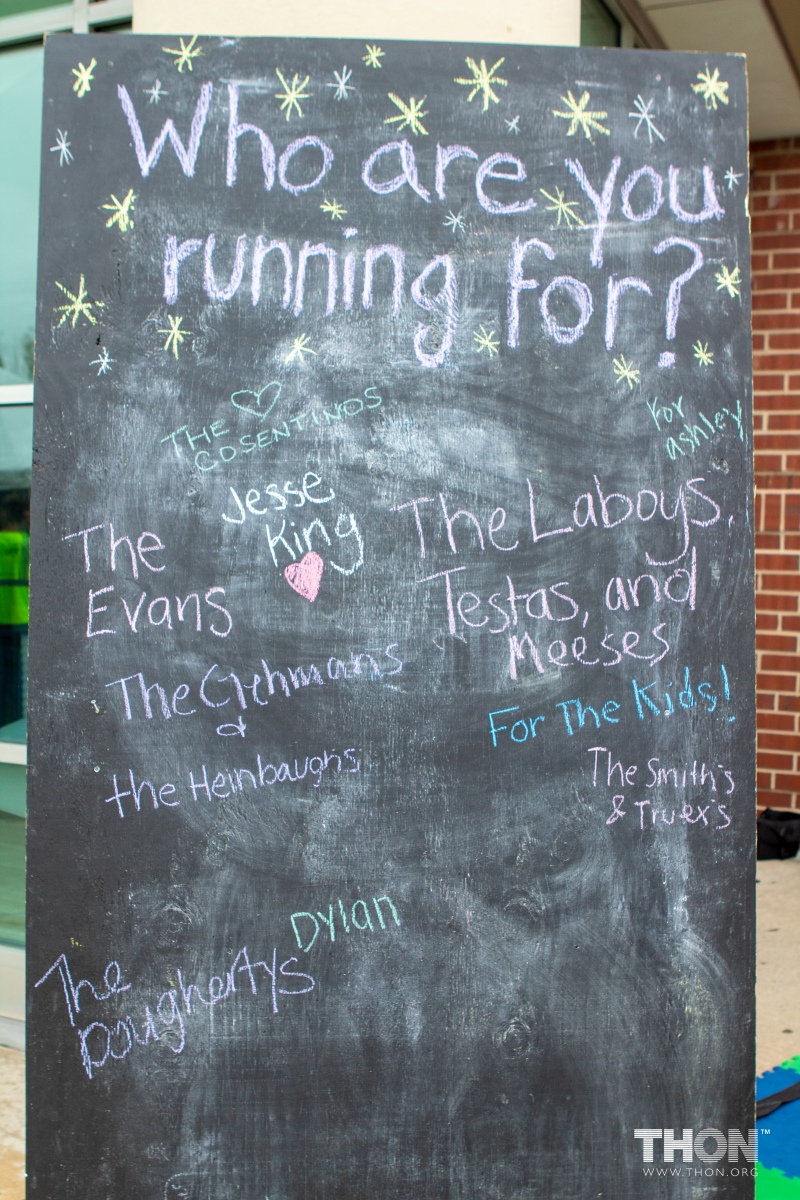 Who are you
running for?
THE
COSENTINOS
For
ashley
Jesse
King
The
Evans
The Laboys,
Testas, and
Meeses
The Gehmans
&
the Heinbaughs
For The Kids!
The Smith's
& Truex's
Dylan
The
Doughertys
THON™
WWW.THON.ORG